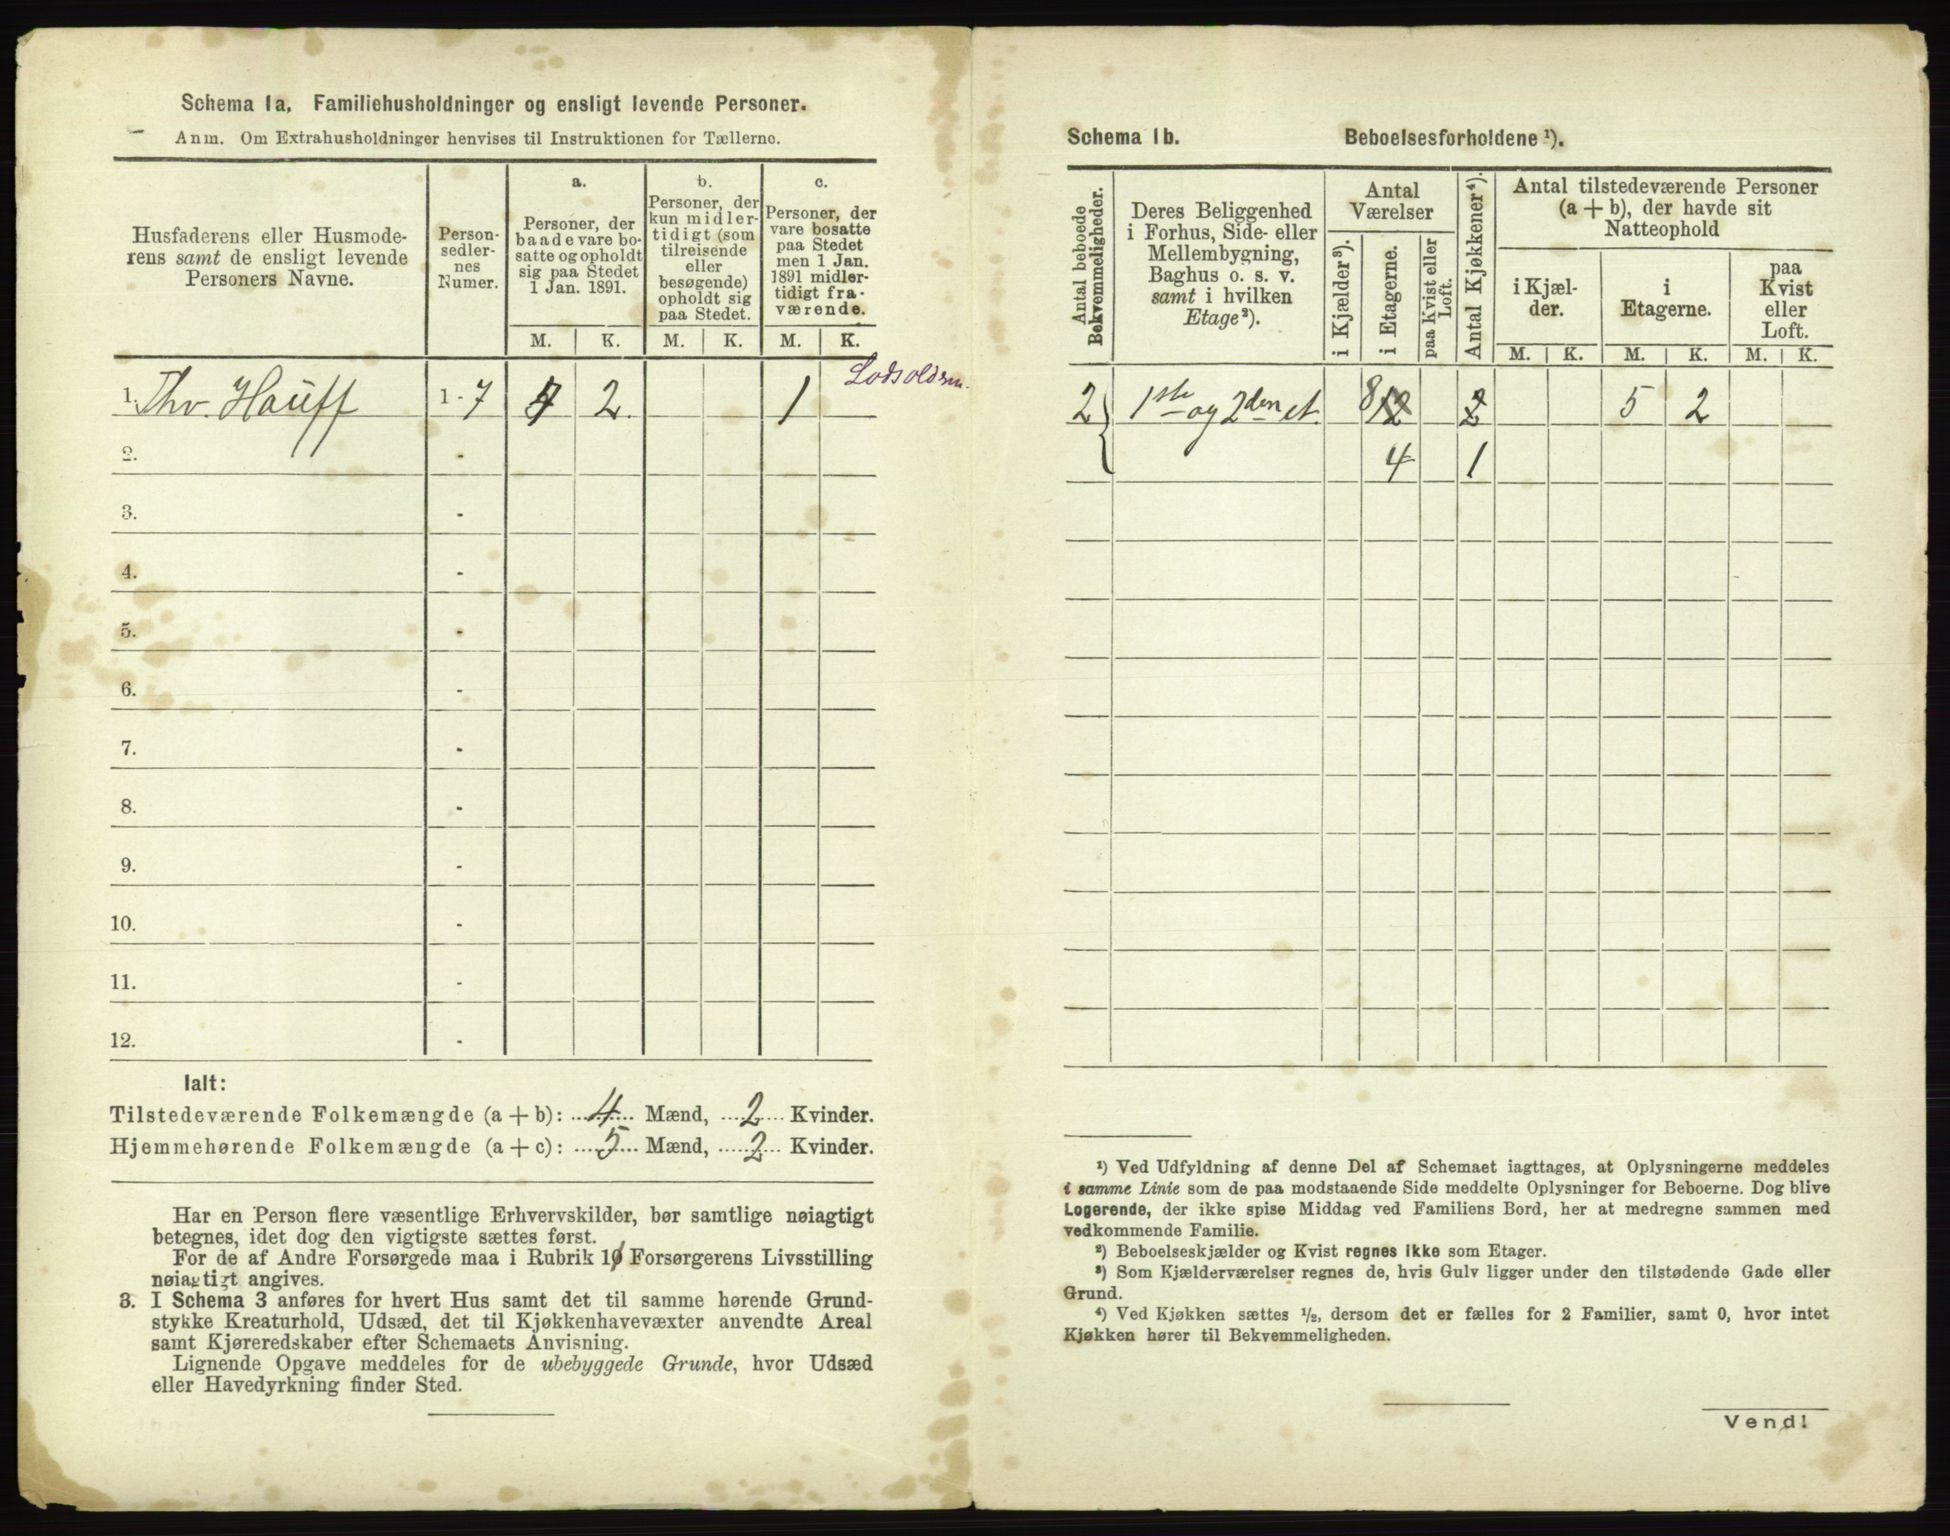 Schema 1a. Familiehusholdninger og ensligt levende Personer.
Anm. Om Extrahusholdninger henvises til Instruktionen for Tællerne.
Husfaderens eller Husmode-
rens samt de ensligt levende
Personers Navne.
Person-
sedler-
nes
Numer.
a.
Personer, der
baade vare bo-
satte og opholdt
sig paa Stedet
1 Jan. 1891.
b.
Personer, der
kun midler-
tidigt (som
tilreisende
eller
besøgende)
opholdt sig
paa Stedet.
c.
Personer, der
vare bosatte
paa Stedet
men 1 Jan.
1891 midler-
tidigt fra-
værende.
M. K. M. K. M. K.
1. Thv. Hauff 1 - 7 4 2. 1
2. -
3. -
4. -
5. -
6. -
7. -
8. -
9. -
10. -
11. -
12. -
Ialt:
Tilstedeværende Folkemængde (a + b): 4 Mænd, 2 Kvinder.
Hjemmehørende Folkemængde (a + c): 5 Mænd, 2 Kvinder.
Har en Person flere væsentlige Erhvervskilder, bør samtlige nøiagtigt
betegnes, idet dog den vigtigste sættes først.
For de af Andre Forsørgede maa i Rubrik 10 Forsørgerens Livsstilling
nøiagtigt angives.
3. I Schema 3 anføres for hvert Hus samt det til samme hørende Grund-
stykke Kreaturhold, Udsæd, det til Kjøkkenhavevæxter anvendte Areal
samt Kjøreredskaber efter Schemaets Anvisning.
Lignende Opgave meddeles for de ubebyggede Grunde, hvor Udsæd
eller Havedyrkning finder Sted.
Schema 1b. Beboelsesforholdene ¹).
Antal beboede
Bekvemmeligheder.
Deres Beliggenhed
i Forhus, Side- eller
Mellembygning,
Baghus o. s. v.
samt i hvilken
Etage²).
Antal
Værelser
i Kjælder³).
i Etagerne.
paa Kvist eller
Loft.
Antal Kjøkkener⁴).
Antal tilstedeværende Personer
(a + b), der havde sit
Natteophold
i Kjæl-
der.
i
Etagerne.
paa
Kvist
eller
Loft.
M. K. M. K. M. K.
2 1ste og 2den et. 8 12 2 5 2
4 1
¹) Ved Udfyldning af denne Del af Schemaet iagttages, at Oplysningerne meddeles
i samme Linie som de paa modstaaende Side meddelte Oplysninger for Beboerne. Dog blive
Logerende, der ikke spise Middag ved Familiens Bord, her at medregne sammen med
vedkommende Familie.
²) Beboelseskjælder og Kvist regnes ikke som Etager.
³) Som Kjælderværelser regnes de, hvis Gulv ligger under den tilstødende Gade eller
Grund.
⁴) Ved Kjøkken sættes ¹/₂, dersom det er fælles for 2 Familier, samt 0, hvor intet
Kjøkken hører til Bekvemmeligheden.
Vend!